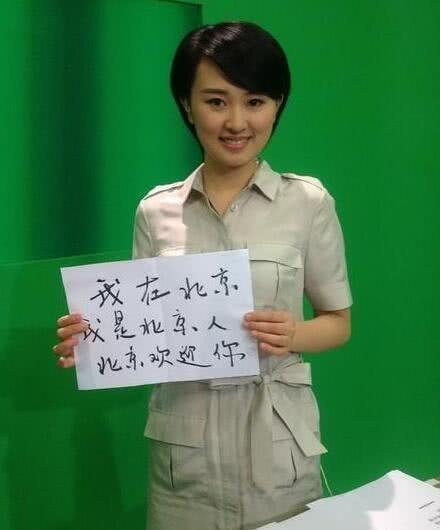 我在北京
我是北京人
北京欢迎你